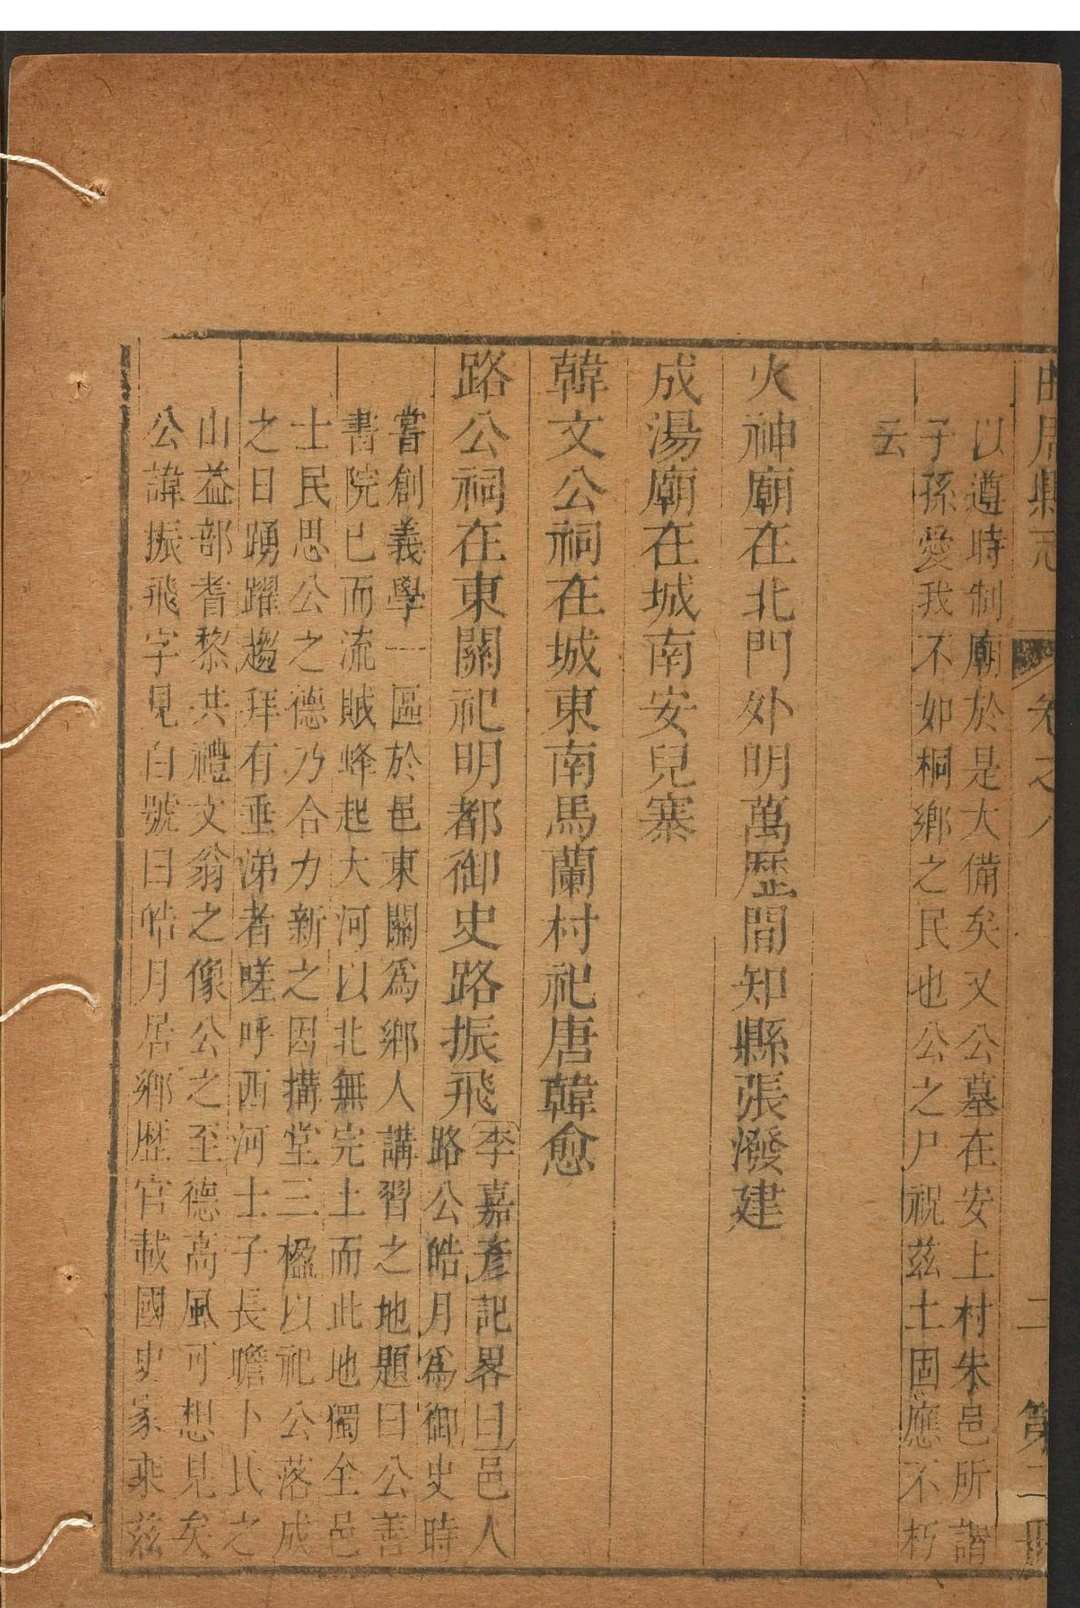 曲周縣志
卷之八
二
第二冊
以遵時制廟於是大備矣又公墓在安上村朱邑所謂
子孫愛我不如桐鄉之民也公之尸祝茲土固應不朽
云
火神廟在北門外明萬歷間知縣張潑建
成湯廟在城南安兒寨
韓文公祠在城東南馬蘭村祀唐韓愈
路公祠在東關祀明都御史路振飛
李嘉彥記畧曰邑人
路公皓月爲御史時
嘗創義學一區於邑東關爲鄉人講習之地題曰公善
書院已而流賊蜂起大河以北無完土而此地獨全邑
士民思公之德乃合力新之因搆堂三楹以祀公落成
之日踴躍趨拜有垂涕者嗟呼西河士子長瞻卜氏之
山益部耆黎共禮文翁之像公之至德高風可想見矣
公諱振飛字見白號曰皓月居鄉歷官載國史家乘茲